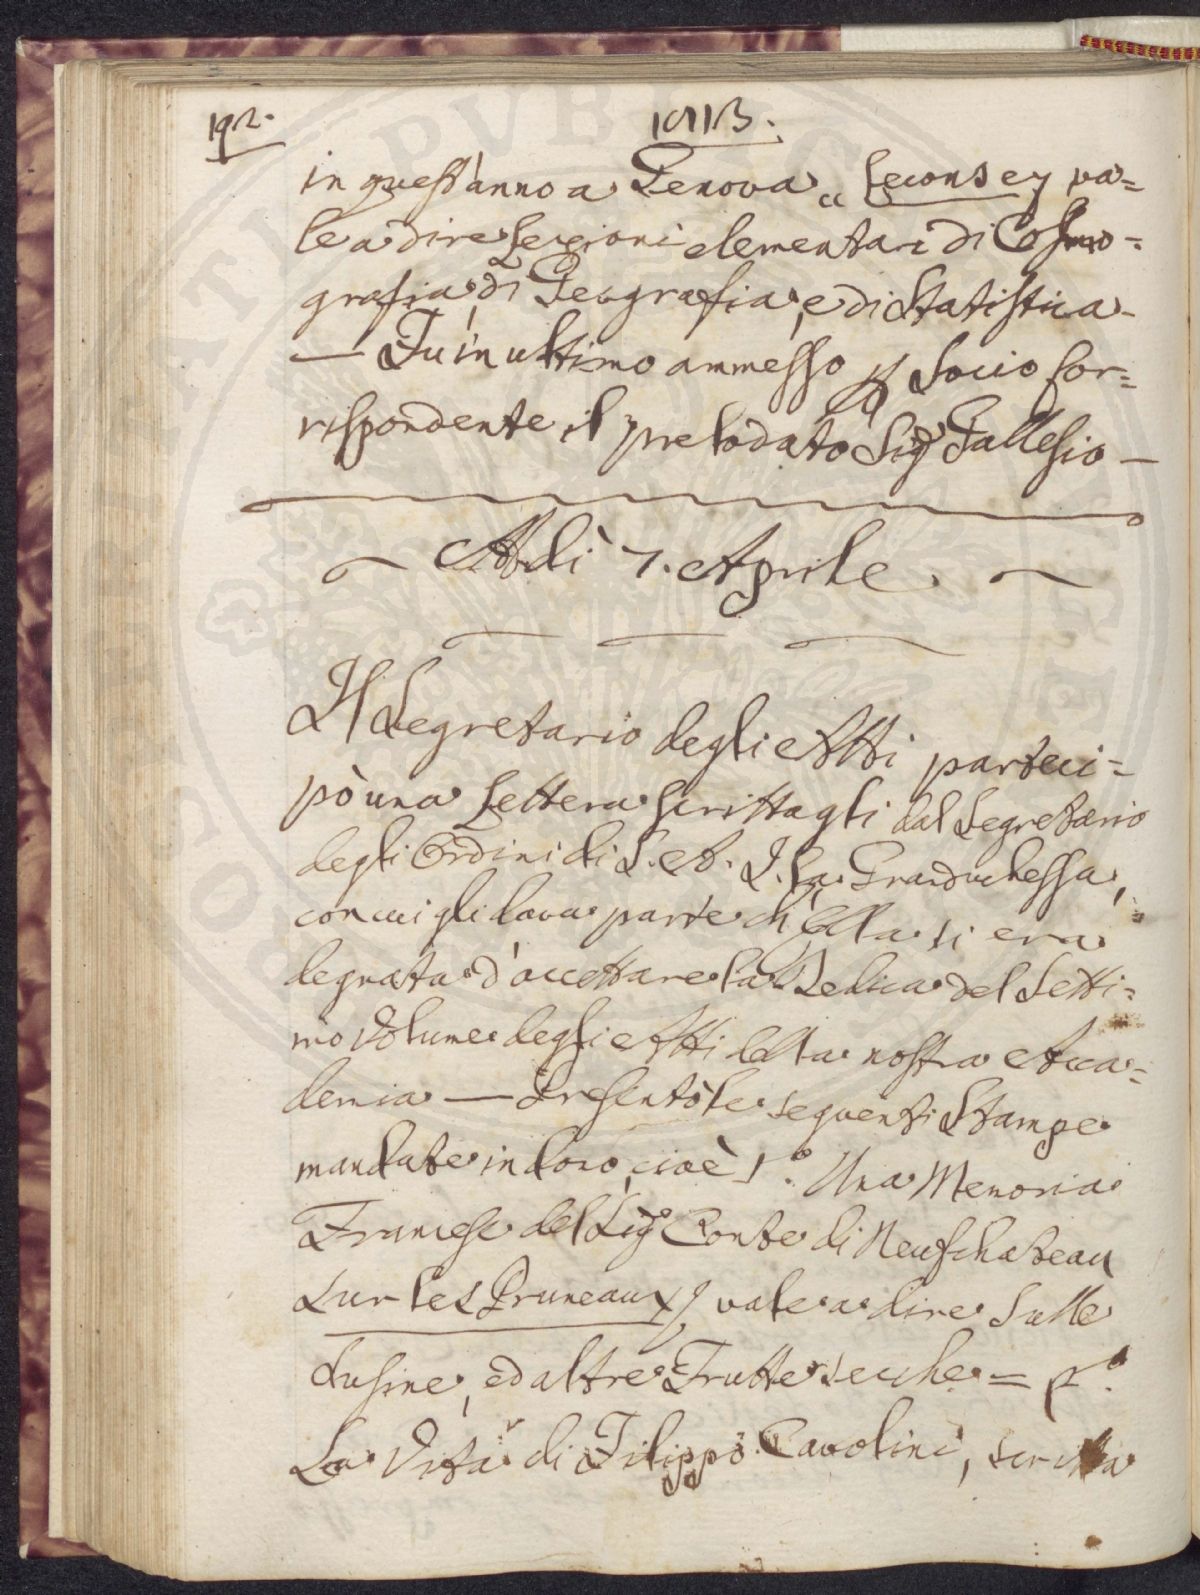 192.
1813.
in quest'anno a Genova „ Leçons ey va=
le a dire Lezioni elementari di Cosmo=
grafia, di Geografia, e di Statistica -
— Fu in ultimo ammesso p Socio Cor=
rispondente il prelodato Sig.r Gallesio —
Adì 7. Aprile.
Il Segretario degli Atti parteci=
pò una Lettera scrittagli dal Segretario
degli Ordini di S. A. I. la Granduchessa,
con cui gli dava parte ch'Ella si era
degnata d'accettare la Dedica del Setti=
mo Volume degli Atti della nostra Acca=
demia — Presentò le seguenti Stampe
mandate in dono, cioè 1.º Una Memoria
Francese del Sig.r Conte di Neufchateau
Sur les Pruneaux, vale a dire Sulle
Susine, ed altre Frutte secche = 2.º
La Vita di Filippo Cavolini, scritta